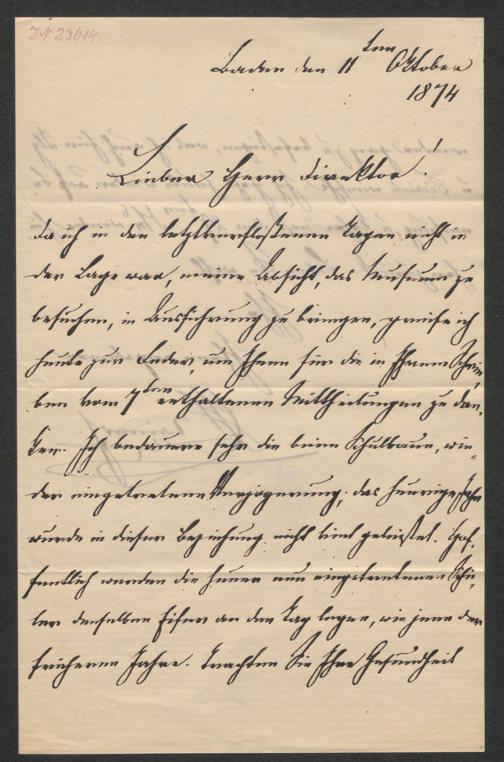 I.N. 23614
Baden den 11ten Oktober
1874
Lieber Herr Direktor!
Da ich in den letztverflossenen Tagen nicht in
der Lage war, meine Absicht, das Museum zu
besuchen, in Ausführung zu bringen, greife ich
heute zur Feder, um Ihnen für die in Ihrem Schrei-
ben vom 7ten enthaltenen Mittheilungen zu dan-
ken. Ich bedauere sehr die beim Schulbaue, wie-
der eingetretene Verzögerung; das heurige Jahr
wurde in dieser Beziehung nicht viel geleistet. Hof-
fentlich werden die heuer neu eingetretenen Schü-
ler denselben Eifer an den Tag legen, wie jene der
früheren Jahre. Trachten Sie Ihre Gesundheit